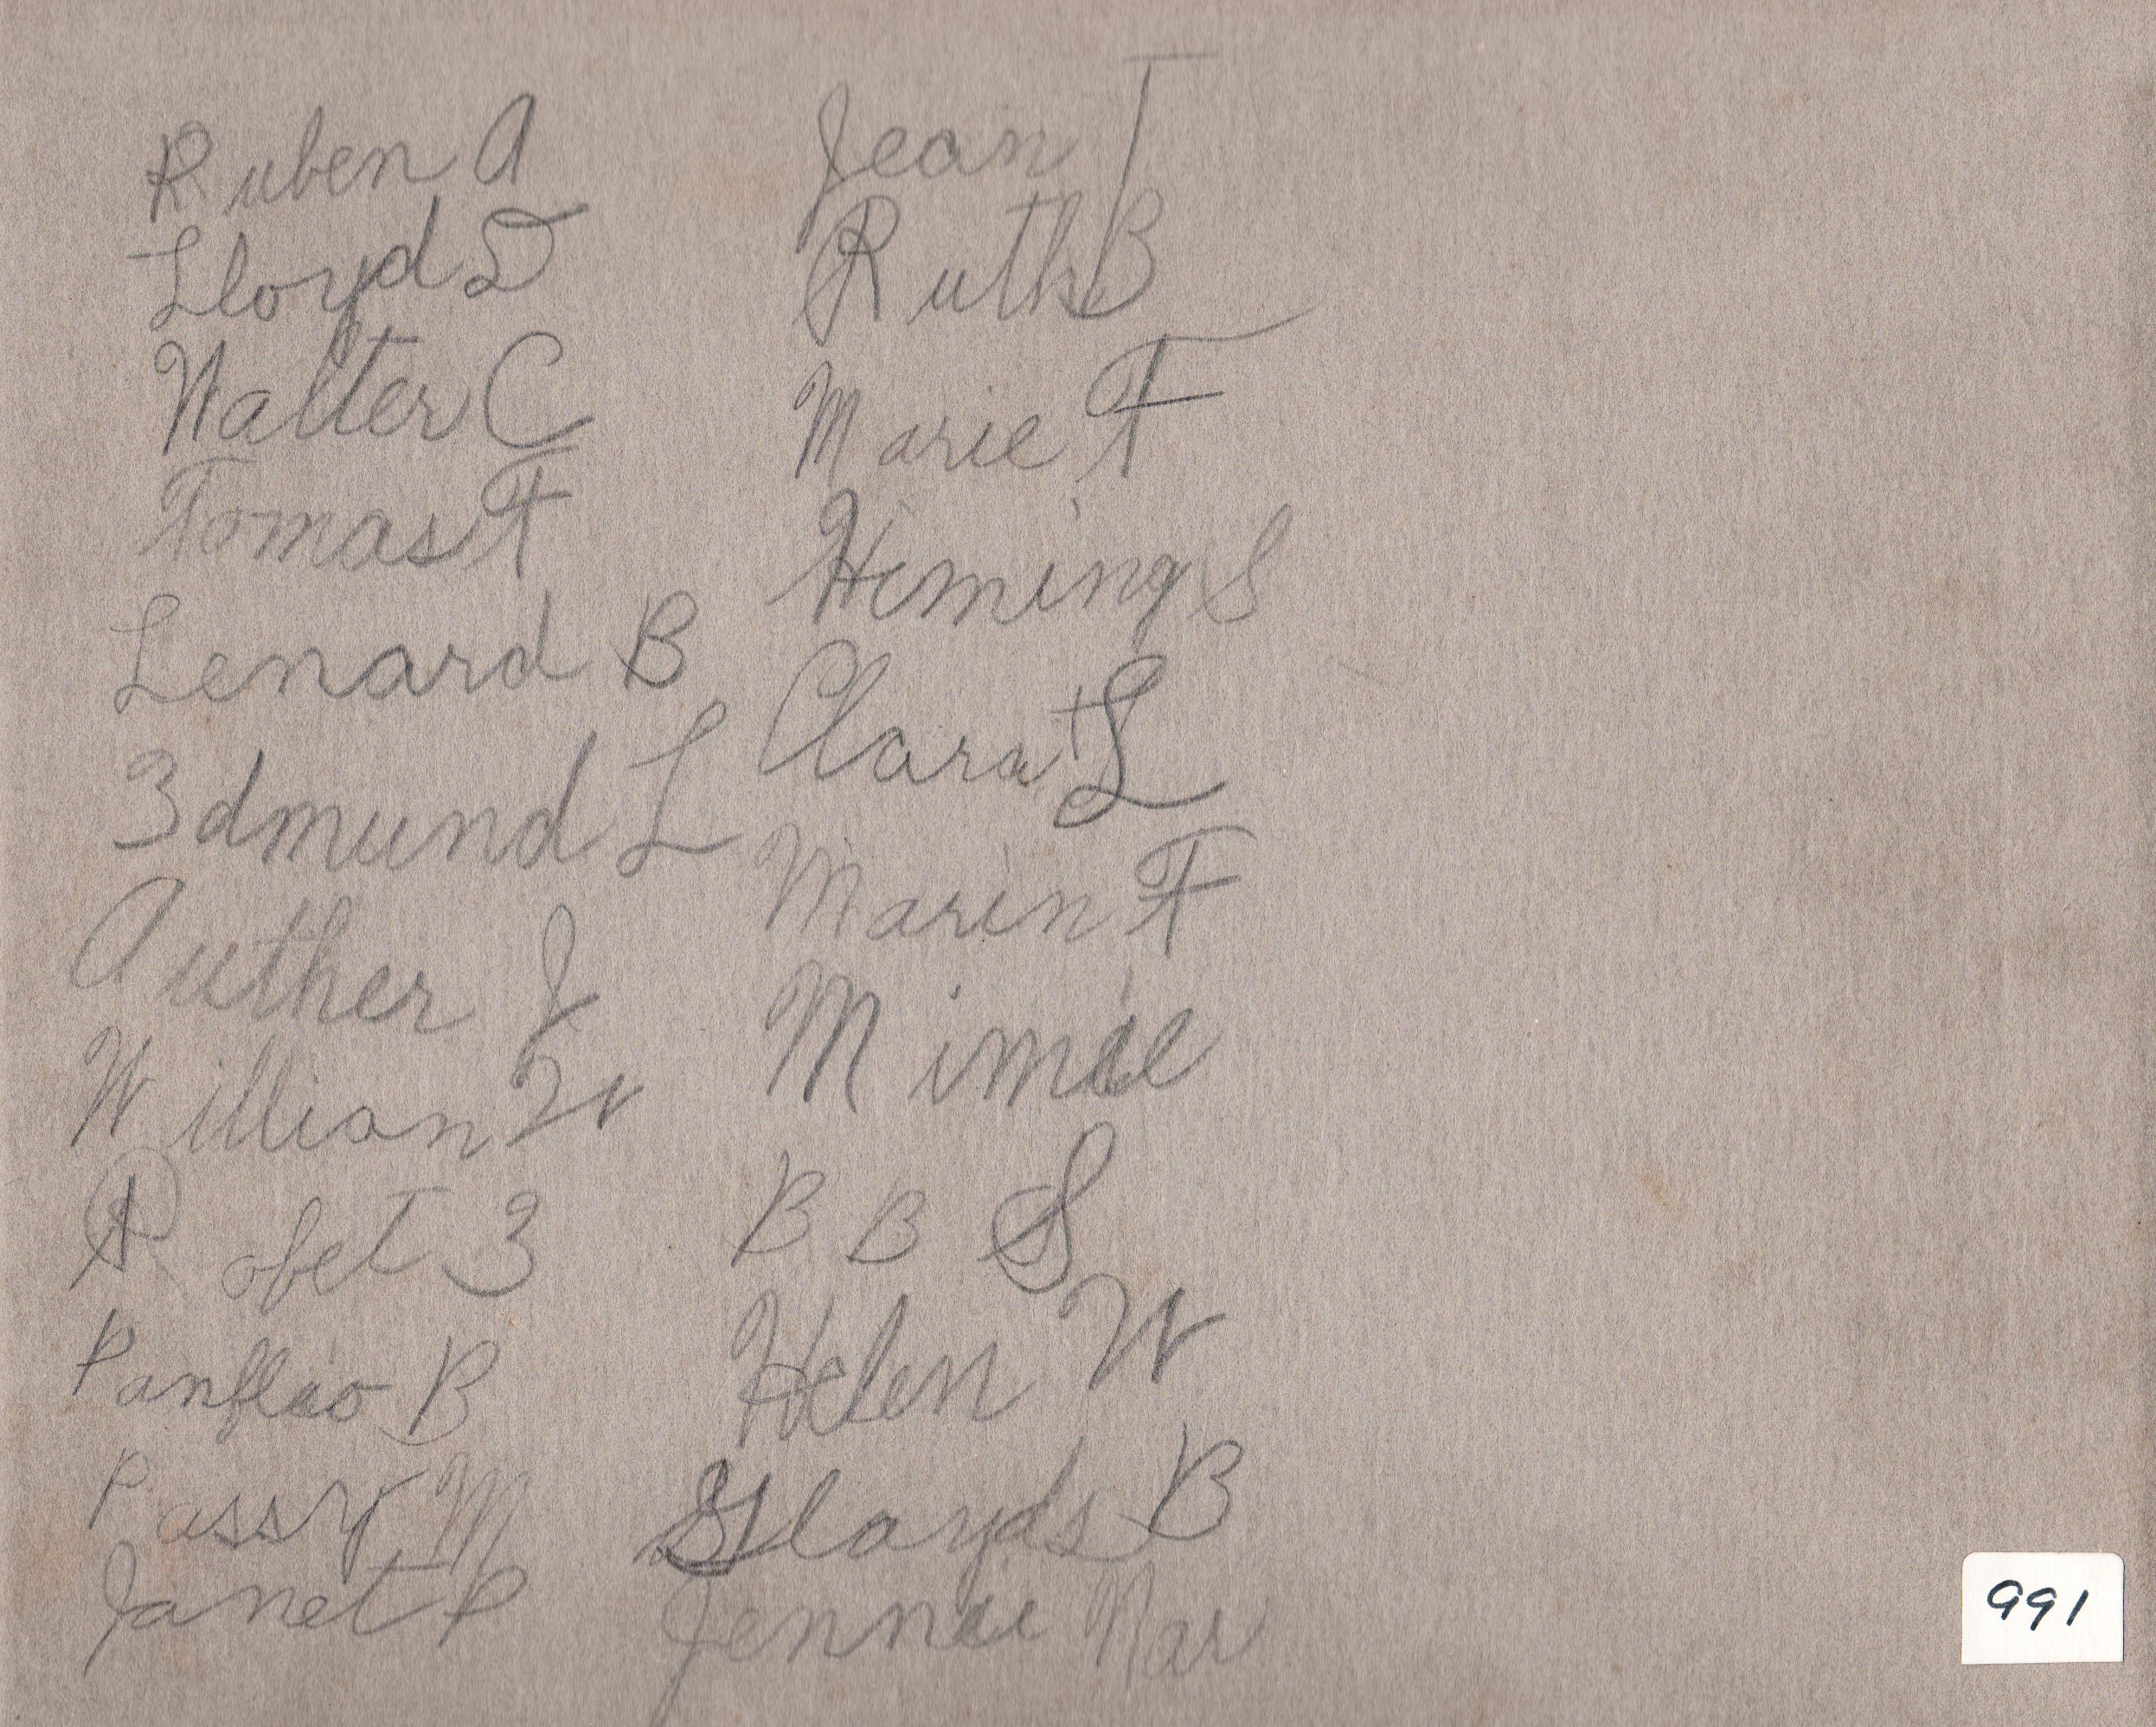 Ruben A
Lloyd D
Walter C
Tomas F
Lenard B
Edmund L
Auther J
Willian W
Robet E
Panfleo B
Passy M
Janet P
Jean T
Ruth B
Marie F
Heming S
Clara L
Marin F
Mimie
B B S
Helen W
Glayds B
Jennie Nar
991